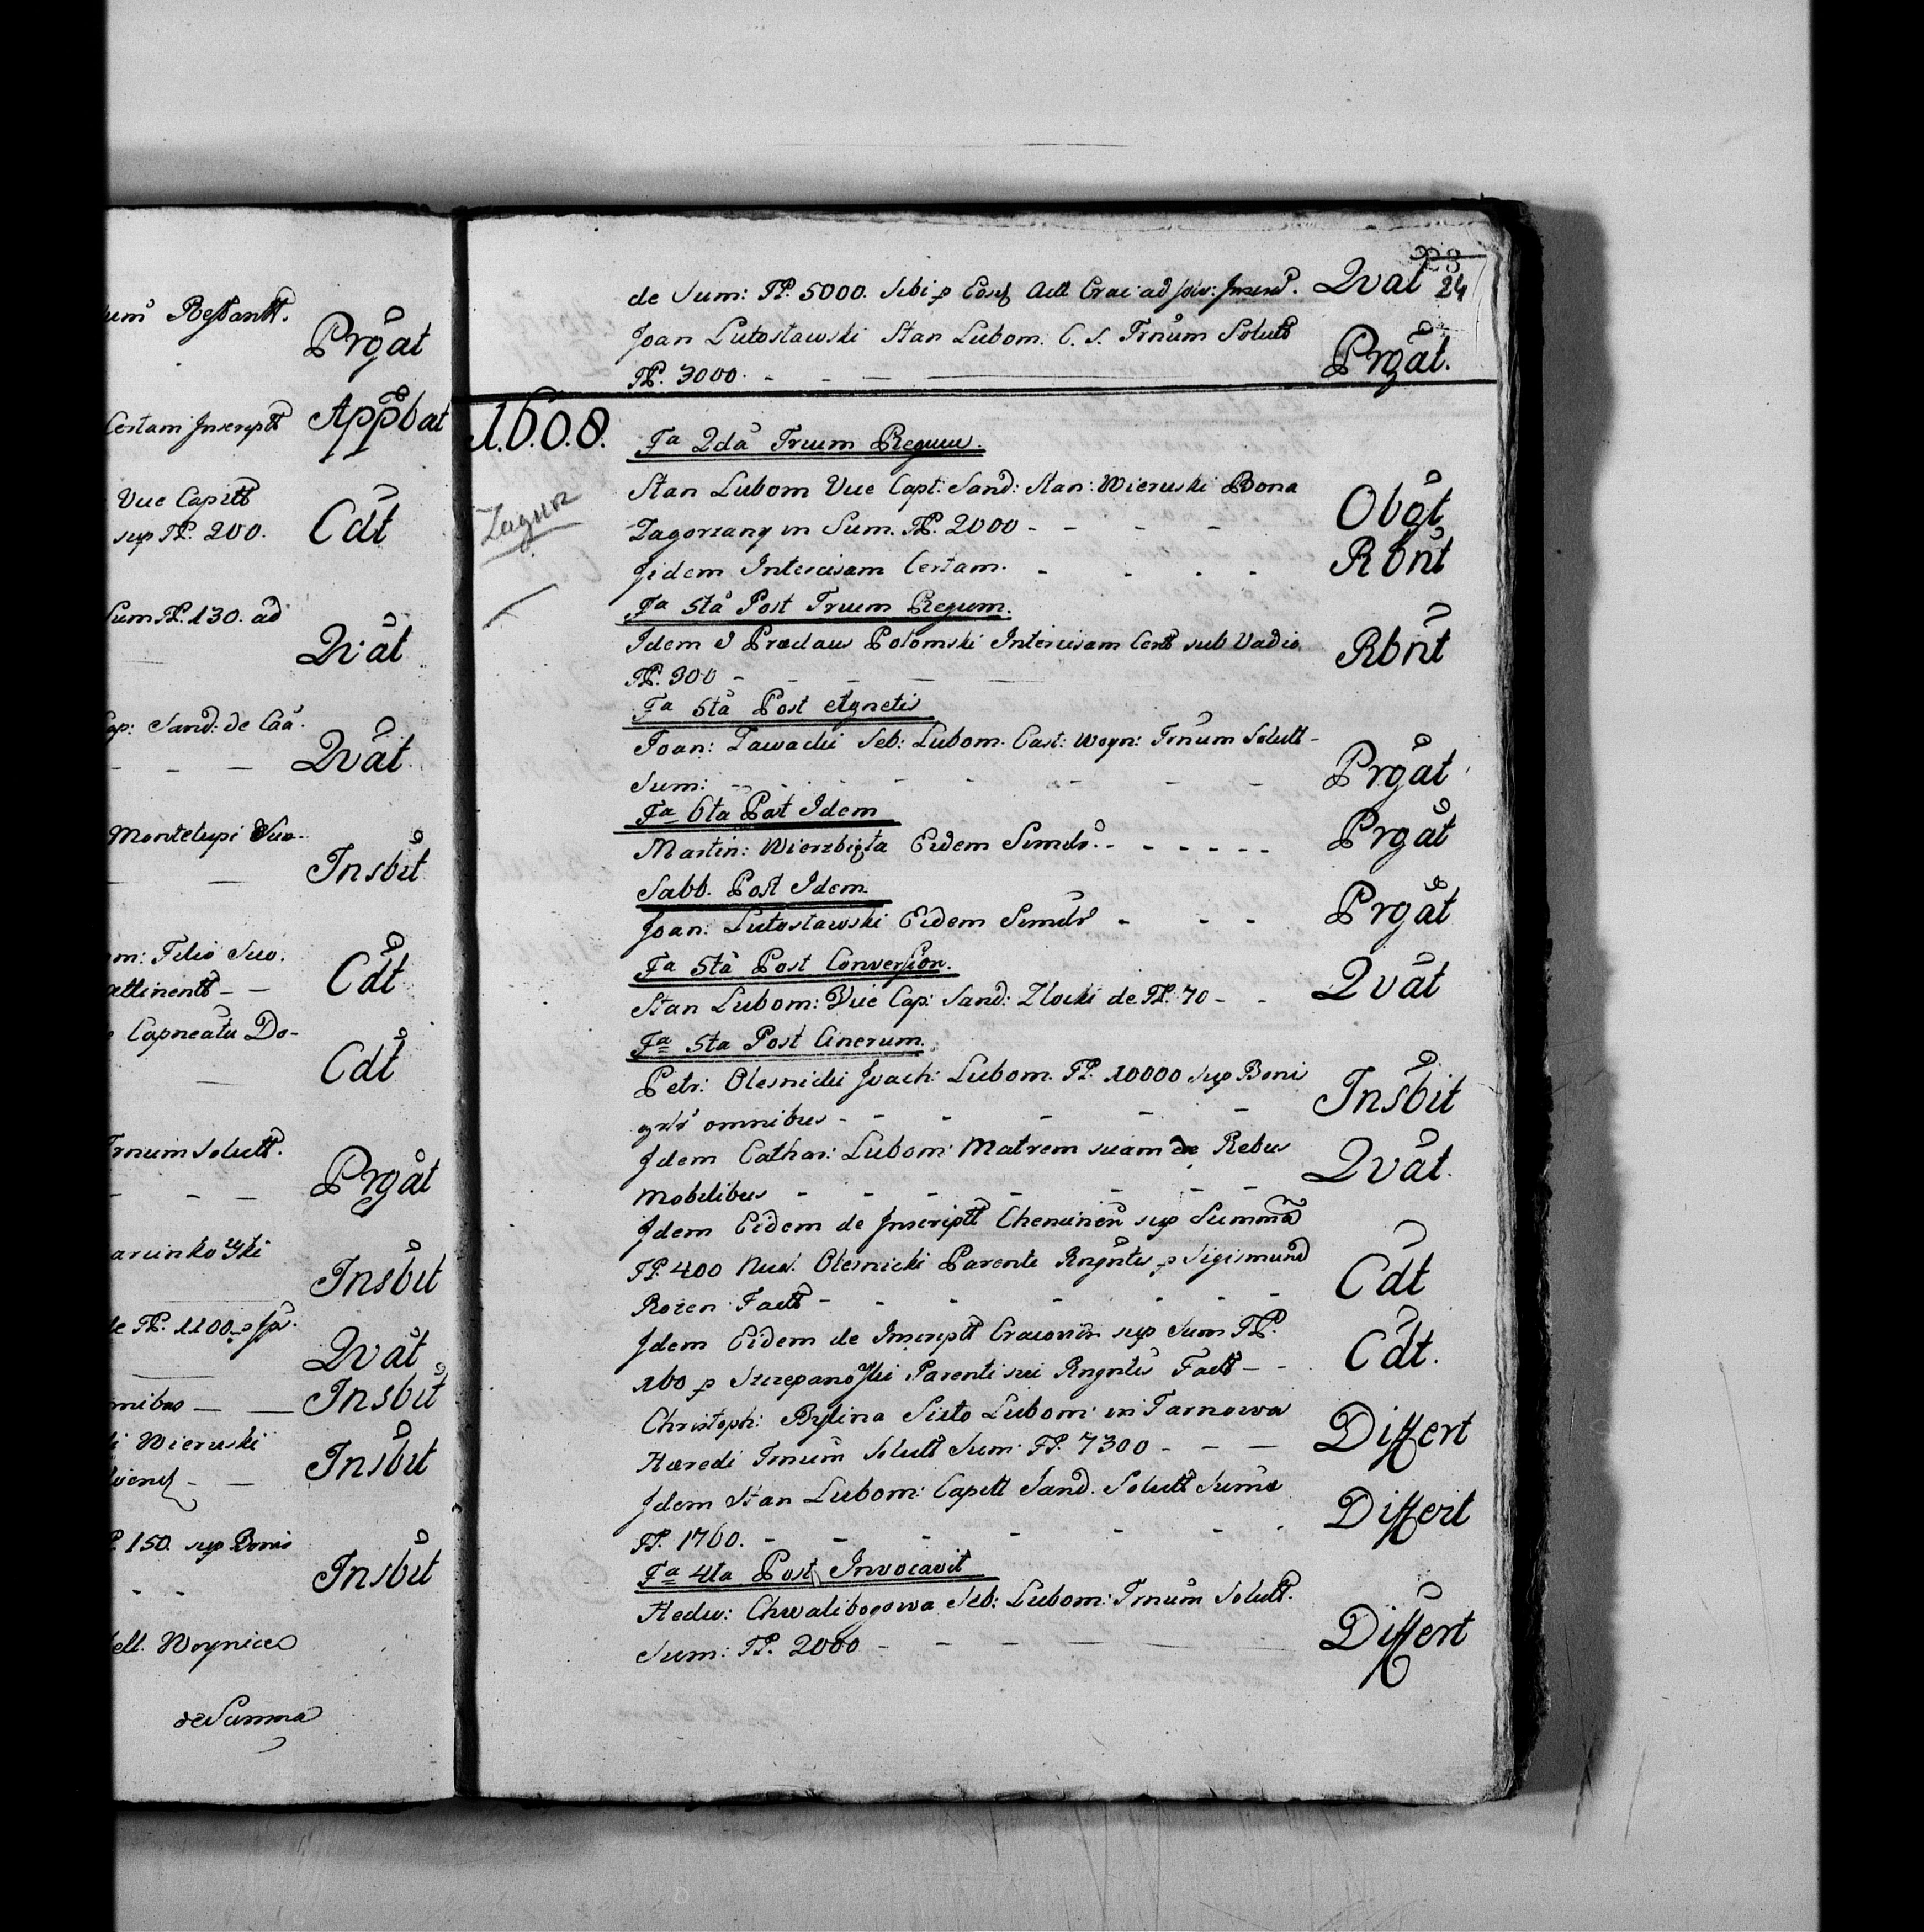 um Restantt.
Prgat
Certam Inscriptt Appbat
Vice Capitt
sup FP. 200. Cdt
Sum FP. 130. ad
Qvat
Cap: Sand: de Caa.
— — — Qvat
Montelupi Suo
— — Insbit
m: Filio Suo.
attinentt — — Cdt
Capneatu Do-
— Cdt
Trnum solutt.
— — — Prgat
arcinkowski
Insbit
de FP. 1100 p
Qvat
omnibus — — Insbit
Wieruski
Insbit
P. 150. sup Bonis
- - Insbit
ell. Woynice
de Summa
23
24
de Sum: FP. 5000. Sibi p Eosd Act Crac: ad Inscrip. Qvat
Joan Lutosławski Stan Lubom. C. S. Trnum Solutt
FP. 3000. - - — Prgat.
1.6.0.8.
Fa 2da Trium Regum.
Zagorz
Stan Lubom Vice Capt: Sand: Stan: Wieruski Bona
Zagorzany in Sum. FP. 2000 - - - - Obgt
Jidem Intercisam Certam. - - - - Rbnt
Fa 5ta Post Trium Regum.
Idem & Praeclaus Potomski Intercisam Certt sub Vadio
FP. 300 - - - - Rbnt
Fa 5ta Post Agnetis
Joan: Zawacki Seb: Lubom. Cast: Woyn: Trnum Solutt -
Sum: - - - - - - - Prgat
Fa 6ta Post Idem
Martin: Wierzbięta Eidem Simdr. - - - - - - Prgat
Sabb. Post Idem
Joan: Lutosławski Eidem Simdr - - - Prgat
Fa 5ta Post Conversion.
Stan Lubom: Vice Cap: Sand: Zlocki de FP. 70 - - Qvat
Fa 5ta Post Cinerum.
Petr: Olesnicki Joach: Lubom. FP. 10000 sup Bonis
grlr omnibus - - - - - - Insbit
Jdem Cathar: Lubom: Matrem suam de Rebus
Mobilibus - - - - - - - Qvat.
Jdem Eidem de Inscriptt Chencinen sup Summa
FP. 400 Nicol. Olesnicki Parenti Rngntis p Sigismund
Rozen Factt - - - - - - - Cdt
Jdem Eidem de Inscriptt Cracovien sup Sum FP.
160 p Szczepanowski Parenti sui Rngntis Factt - - Cdt.
Christoph: Bylina Sixto Lubom: in Tarnowa
Haeredi Trnum Solutt Sum: FP. 7300 - - - Differt
Jdem Stan Lubom: Capitt Sand. Solutt Suma
FP. 1760. - - - - - - - Differt
Fa 4ta Post Invocavit
Hedw: Chwalibogowa Seb: Lubom: Trnum Solutt.
Sum: FP. 2000 - - - — — Differt